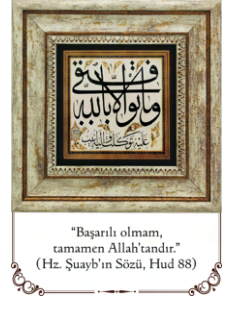 وما توفيقي إلا بالله
عليه توكلت وإليه أنيب
“Başarılı olmam,
tamamen Allah’tandır.”
(Hz. Şuayb’ın Sözü, Hud 88)